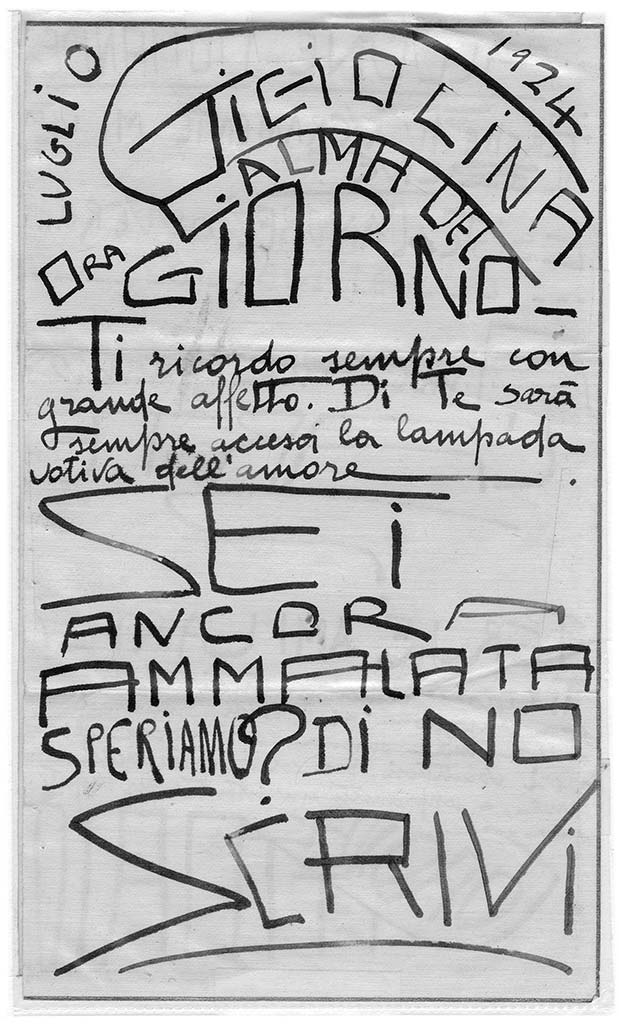 LUGLIO
1924
GIGIOLINA
CALMA DEL
ORA GIORNO_
Ti ricordo sempre con
grande affetto. Di Te sarà
sempre accesa la lampada
votiva dell'amore.
SEI
ANCORA
AMMALATA
SPERIAMO? DI NO
SCRIVI